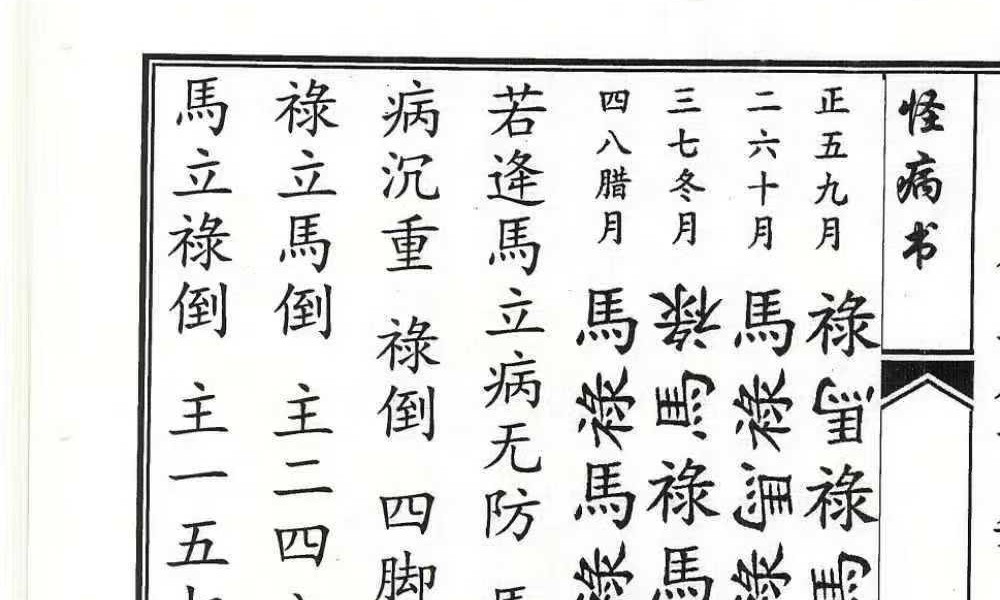 怪病书
正五九月 祿馬祿馬
二六十月 馬祿馬祿
三七冬月 祿馬祿馬
四八腊月 馬祿馬祿
若逢馬立病无防
病沉重 祿倒 四脚
祿立馬倒 主二四
馬立祿倒 主一五